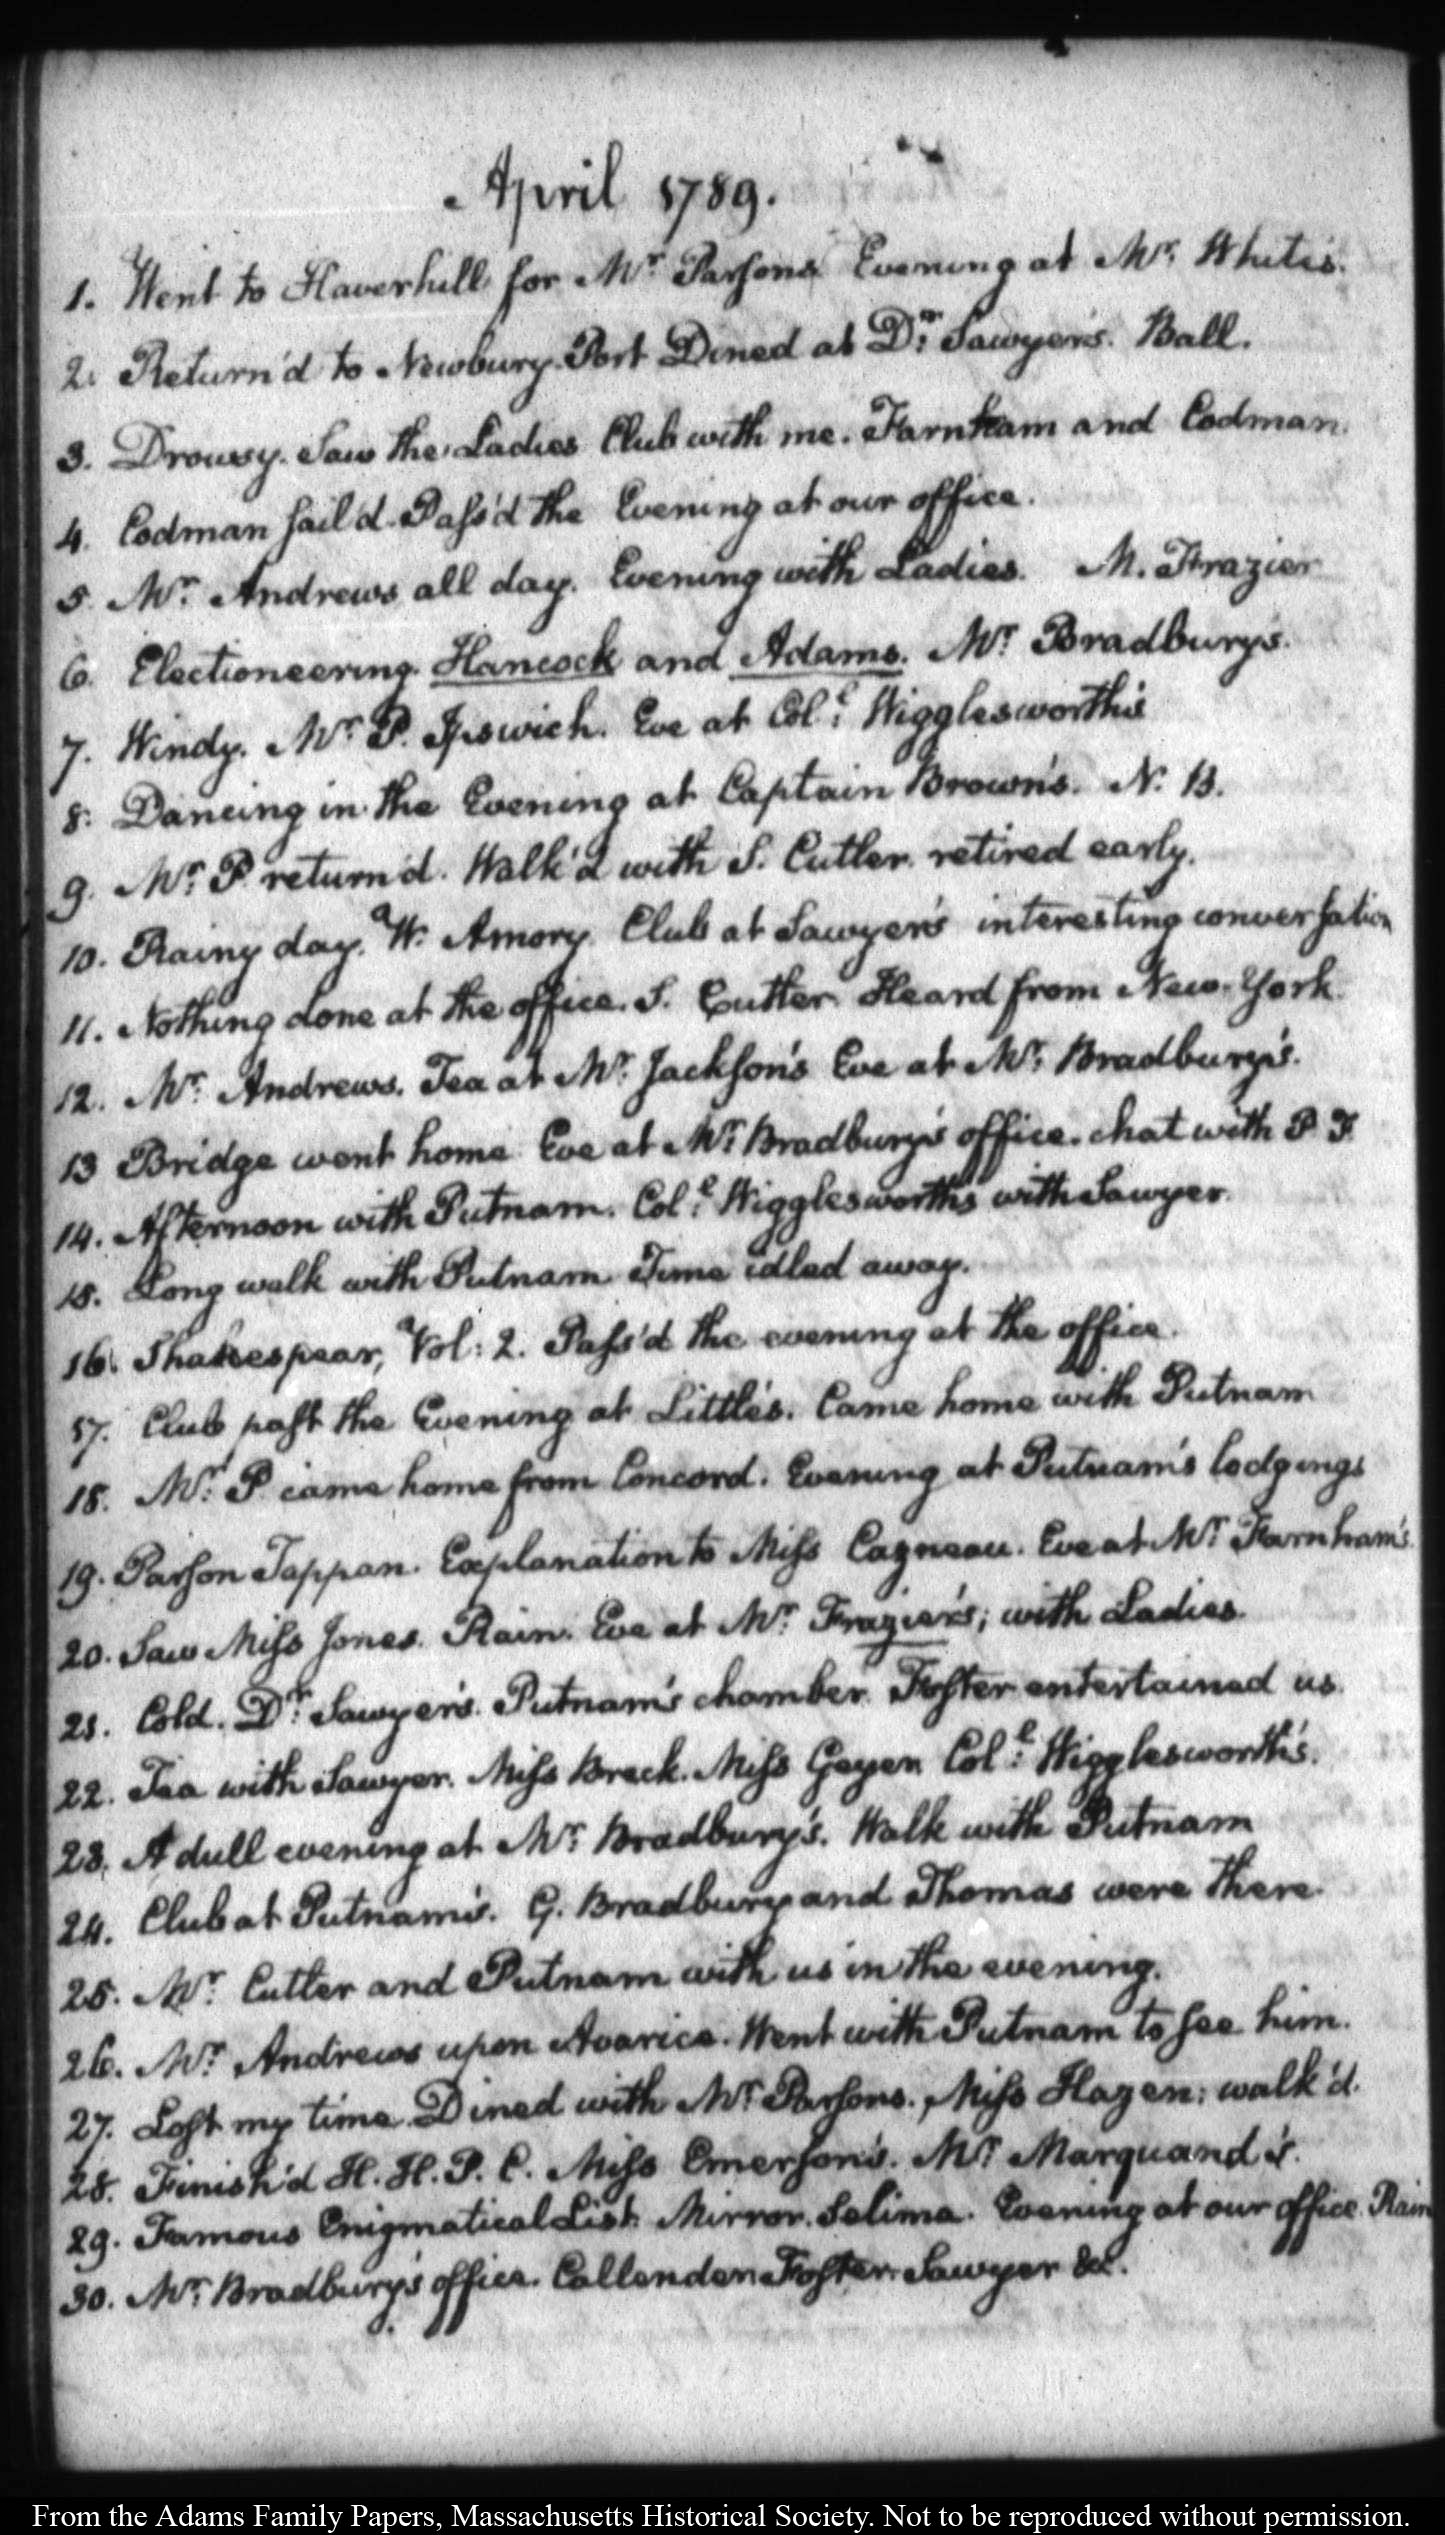 April 1789.
1. Went to Haverhill for Mr. Parsons Evening at Mr. White's.
2. Return'd to Newbury-Port Dined at Dr. Sawyer's. Ball.
3. Drowsy. Saw the Ladies Club with me. Farnham and Codman.
4. Codman sail'd. Pass'd the Evening at our office.
5. Mr. Andrews all day. Evening with Ladies. M. Frazier
6. Electioneering. Hancock and Adams. Mr. Bradbury's.
7. Windy. Mr. P. Ipswich. Eve at Coll. Wigglesworth's
8. Dancing in the Evening at Captain Brown's. N. B.
9. Mr. P. return'd. Walk'd with S. Cutler. retired early.
10. Rainy day. W. Amory. Club at Sawyer's interesting conversation
11. Nothing done at the office. S. Cutler. Heard from New-York.
12. Mr. Andrews. Tea at Mr. Jackson's Eve at Mr. Bradbury's.
13 Bridge went home Eve at Mr. Bradbury's office. chat with P F.
14. Afternoon with Putnam. Coll. Wigglesworth's with Sawyer.
15. Long walk with Putnam. Time idled away.
16. Shakespear, Vol: 2. Pass'd the evening at the office.
17. Club past the Evening at Little's. Came home with Putnam
18. Mr. P. came home from Concord. Evening at Putnam's lodgings
19. Parson Tappan. Explanation to Miss Cazneau. Eve at Mr. Farnham's.
20. Saw Miss Jones. Rain. Eve at Mr. Frazier's; with Ladies.
21. Cold. Dr. Sawyer's. Putnam's chamber. Foster entertained us.
22. Tea with Sawyer. Miss Breck. Miss Geyer. Coll. Wigglesworth's.
23. A dull evening at Mr. Bradbury's. Walk with Putnam
24. Club at Putnam's. G. Bradbury and Thomas were there.
25. Mr. Cutler and Putnam with us in the evening.
26. Mr. Andrews upon Avarice. Went with Putnam to see him.
27. Lost my time. Dined with Mr. Parsons. Miss Hazen: walk'd.
28. Finish'd H. H. P. C. Miss Emerson's. Mr. Marquand's.
29. Famous Enigmatical List. Mirror. Selima. Evening at our office. Rain
30. Mr. Bradbury's office. Callender. Foster. Sawyer &c.
From the Adams Family Papers, Massachusetts Historical Society. Not to be reproduced without permission.